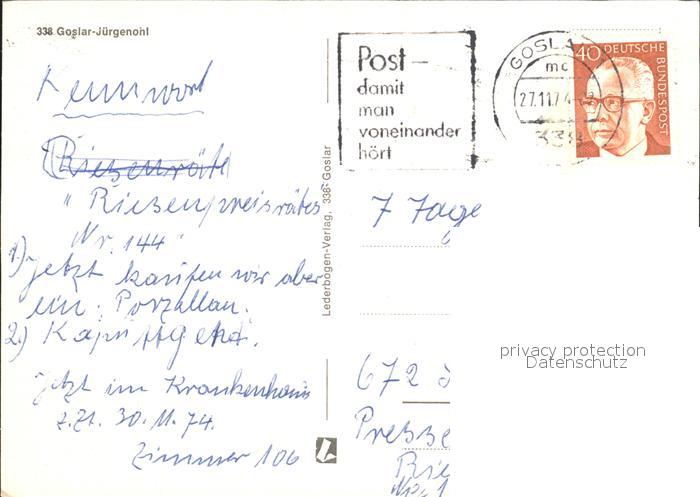 338 Goslar-Jürgenohl
Kennwort
"Riesenpreisrätsel
Nr. 144"
1.) Jetzt kaufen wir aber
ein: Porzellan.
2.) Kaputtgeht.
Jetzt im Krankenhaus
z.Zt. 30.11.74.
Zimmer 106
Lederbogen-Verlag, 338 Goslar
Post–
damit
man
voneinander
hört
GOSLA
mc
27.11.74
338
40 DEUTSCHE
BUNDESPOST
7 Tage
672
Presse
Rie
Nr. 1
privacy protection
Datenschutz